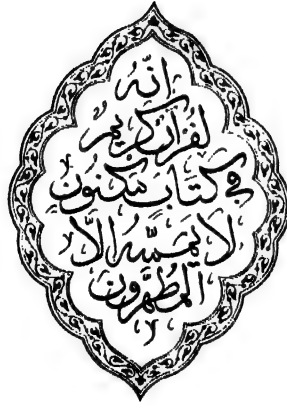 إنّه
لقرآن كريم
في كتاب مكنون
لا يمسّه الّا
المطهّرون